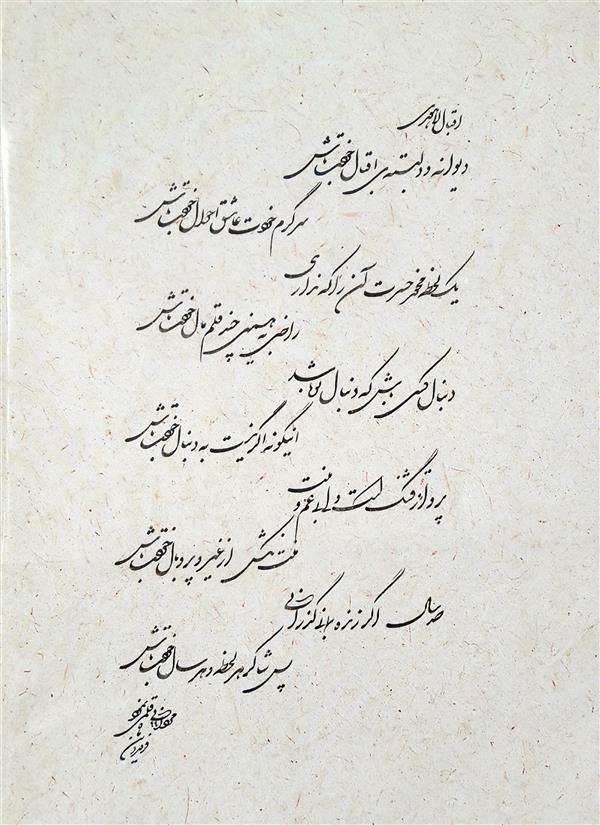 اقبال لاهوری
دیوانه و دلبسته‌ی اقبال خودت باش
سرگرم خودت عاشق احوال خودت باش
یک لحظه نخور حسرت آن را که نداری
راضی به همین چند قلم مال خودت باش
دنبال کسی باش که دنبال تو باشد
اینگونه اگر نیست به دنبال خودت باش
پرواز قشنگ است ولی بی غم و منت
منت نکش از غیر و پر و بال خودت باش
صد سال اگر زنده بمانی گذرانی
پس شاکر هر لحظه و هر سال خودت باش
قلمی نمود
فروردین